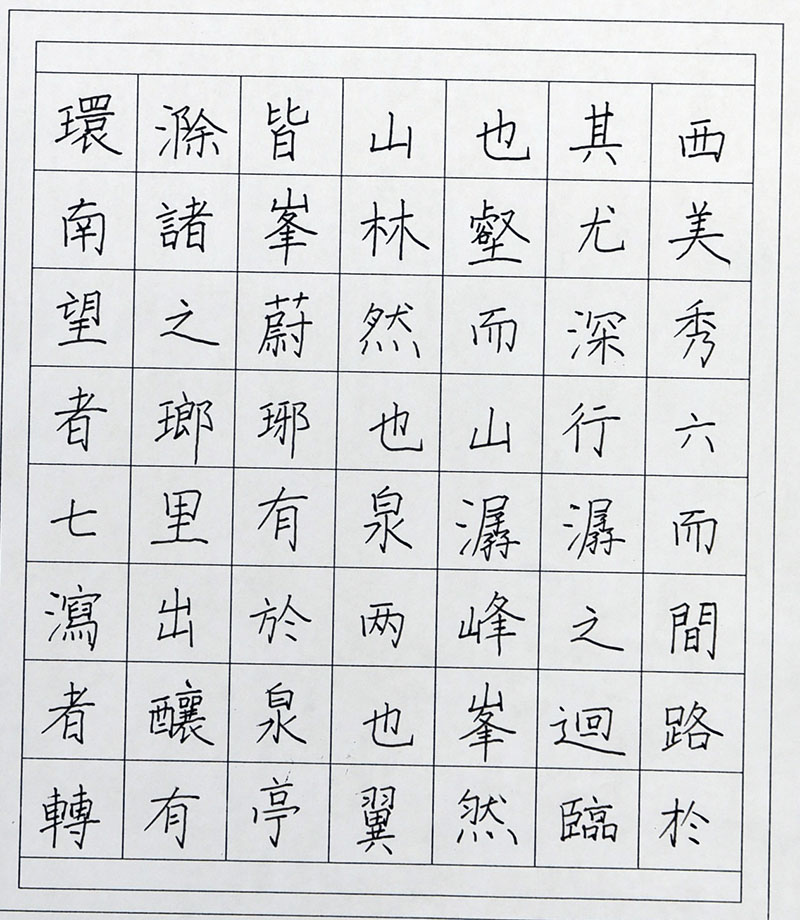 環滁皆山也其西
南諸峯林壑尤美
望之蔚然而深秀
者瑯琊也山行六
七里有泉潺潺而
瀉出於两峰之間
者釀泉也峯迴路
轉有亭翼然臨於